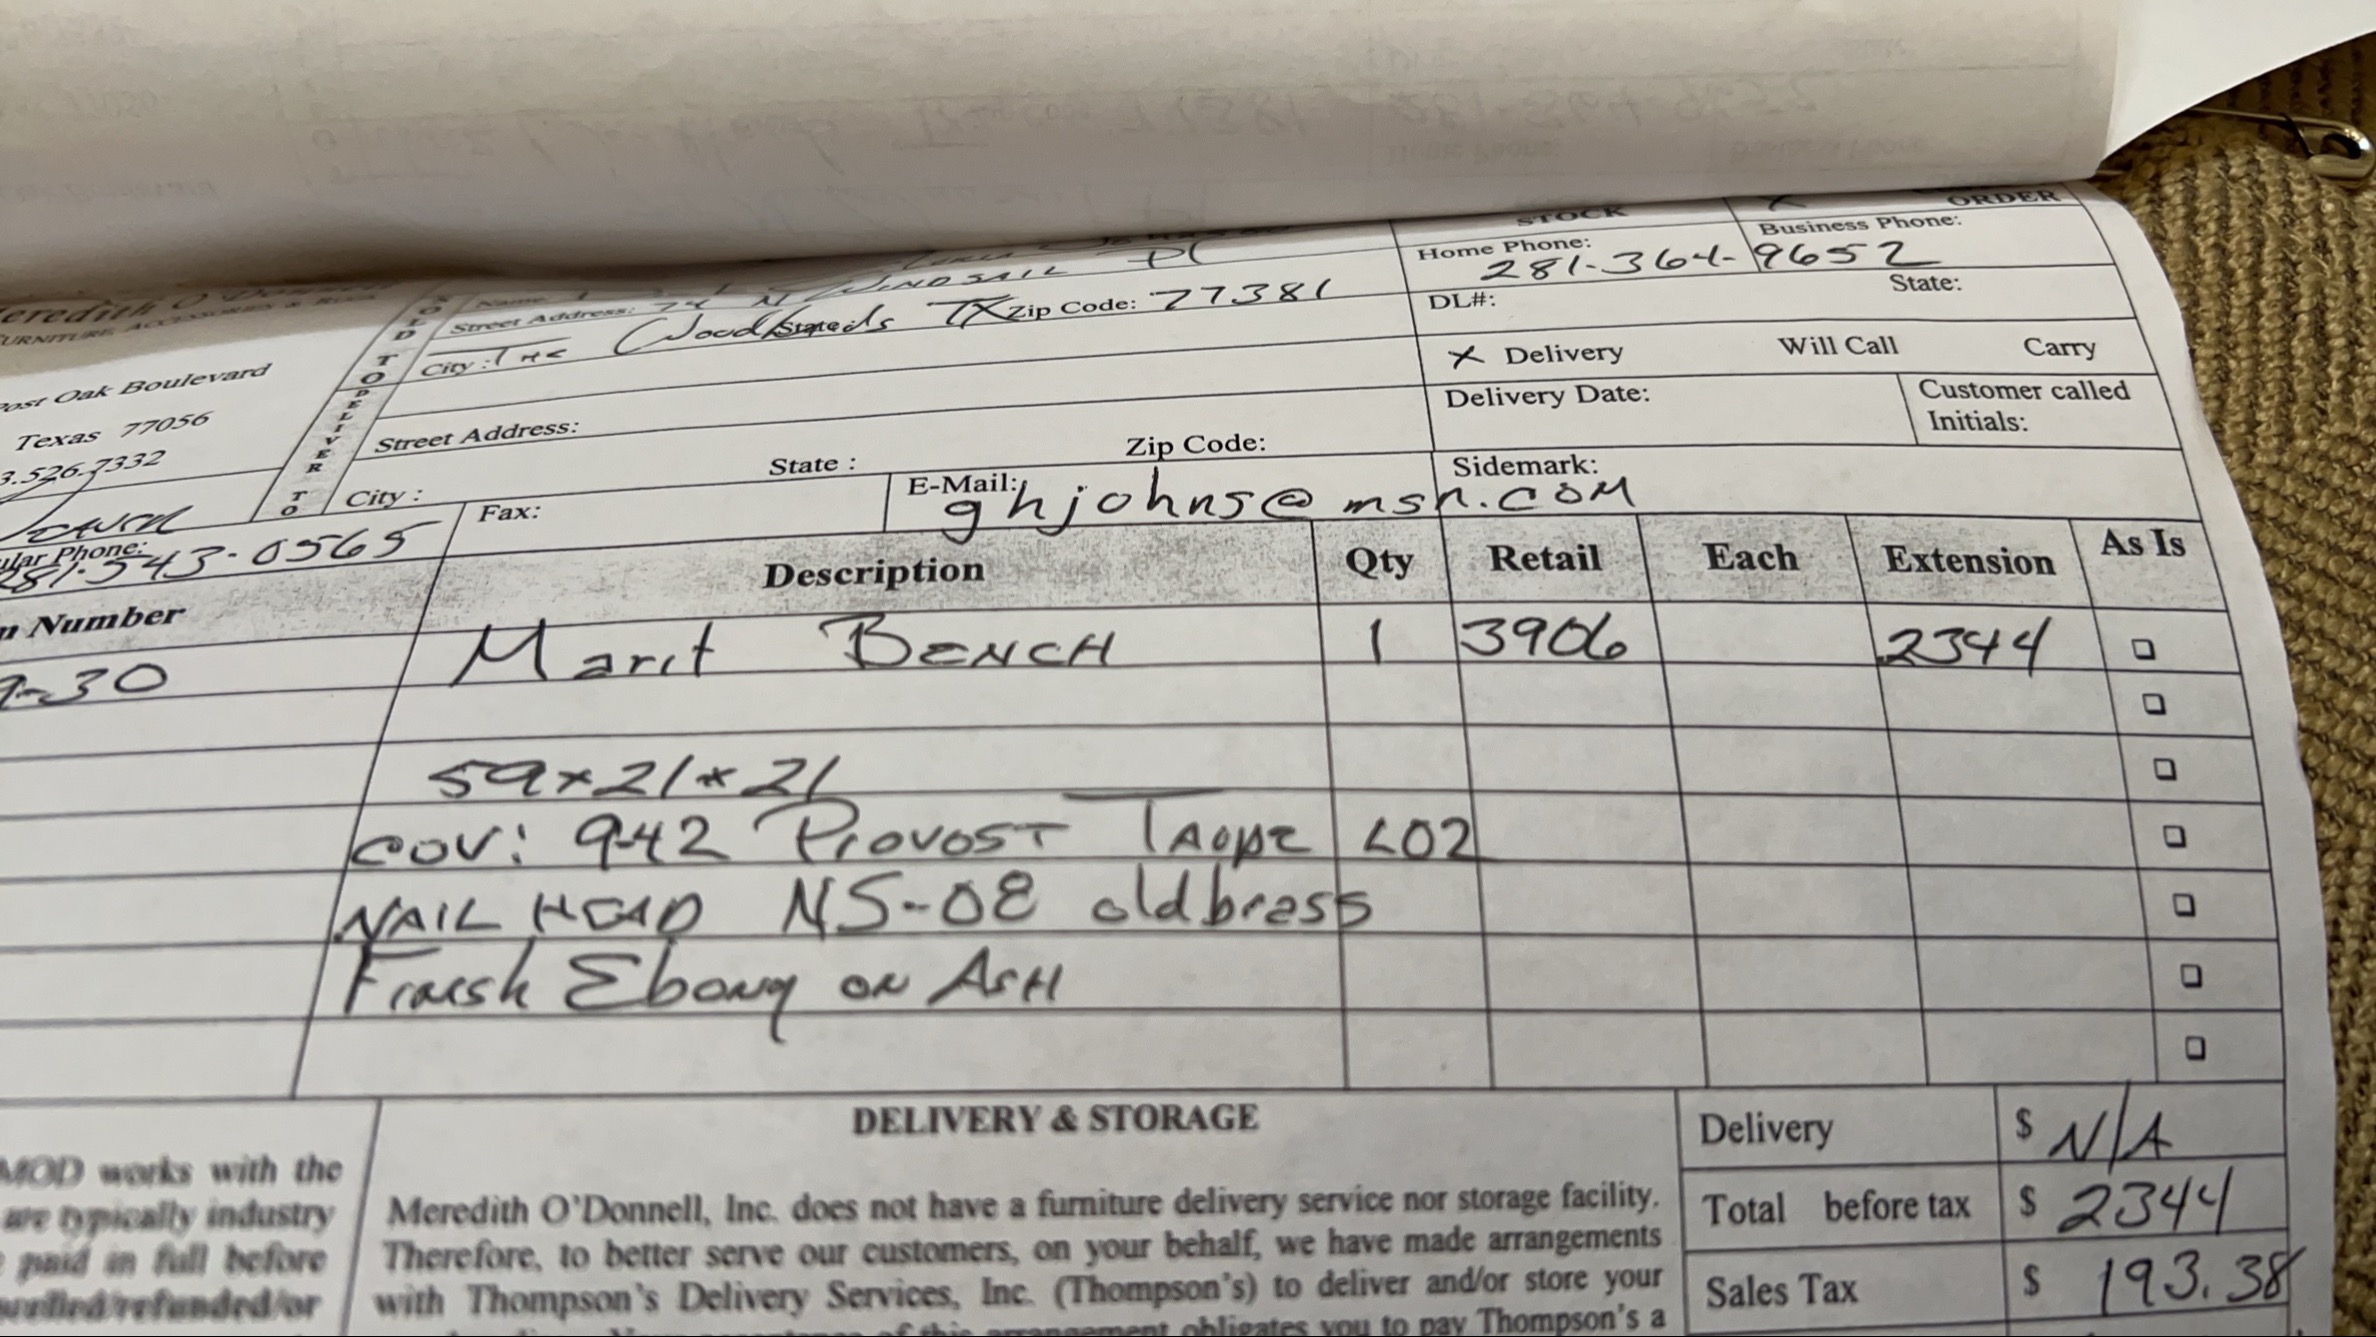 STOCK
ORDER
Home Phone: 281-364-9652 Business Phone:
Name
Street Address: 74 N WINDSAIL Pl
City: THE Woodlands State TX Zip Code: 77381
DL#: State:
X Delivery Will Call Carry
Delivery Date: Customer called Initials:
SOLD TO
DELIVER TO
Meredith O'Donnell
FURNITURE, ACCESSORIES & RUGS
Post Oak Boulevard
Texas 77056
3.526.7332
Street Address:
City: State: Zip Code:
ular Phone: 281-543-0565
Fax:
E-Mail: ghjohns@msn.COM
Sidemark:
Number Description Qty Retail Each Extension As Is
9-30 Marit BENCH 1 3906 2344
59x21x21
COV: 942 PROVOST TAUPE L02
NAIL HEAD NS-08 old brass
Finish Ebony ON ASH
DELIVERY & STORAGE
Delivery $ N/A
Total before tax $ 2344
Sales Tax $ 193.38
MOD works with the
are typically industry
paid in full before
cancelled/refunded/or
Meredith O'Donnell, Inc. does not have a furniture delivery service nor storage facility.
Therefore, to better serve our customers, on your behalf, we have made arrangements
with Thompson's Delivery Services, Inc. (Thompson's) to deliver and/or store your
of this arrangement obligates you to pay Thompson's a